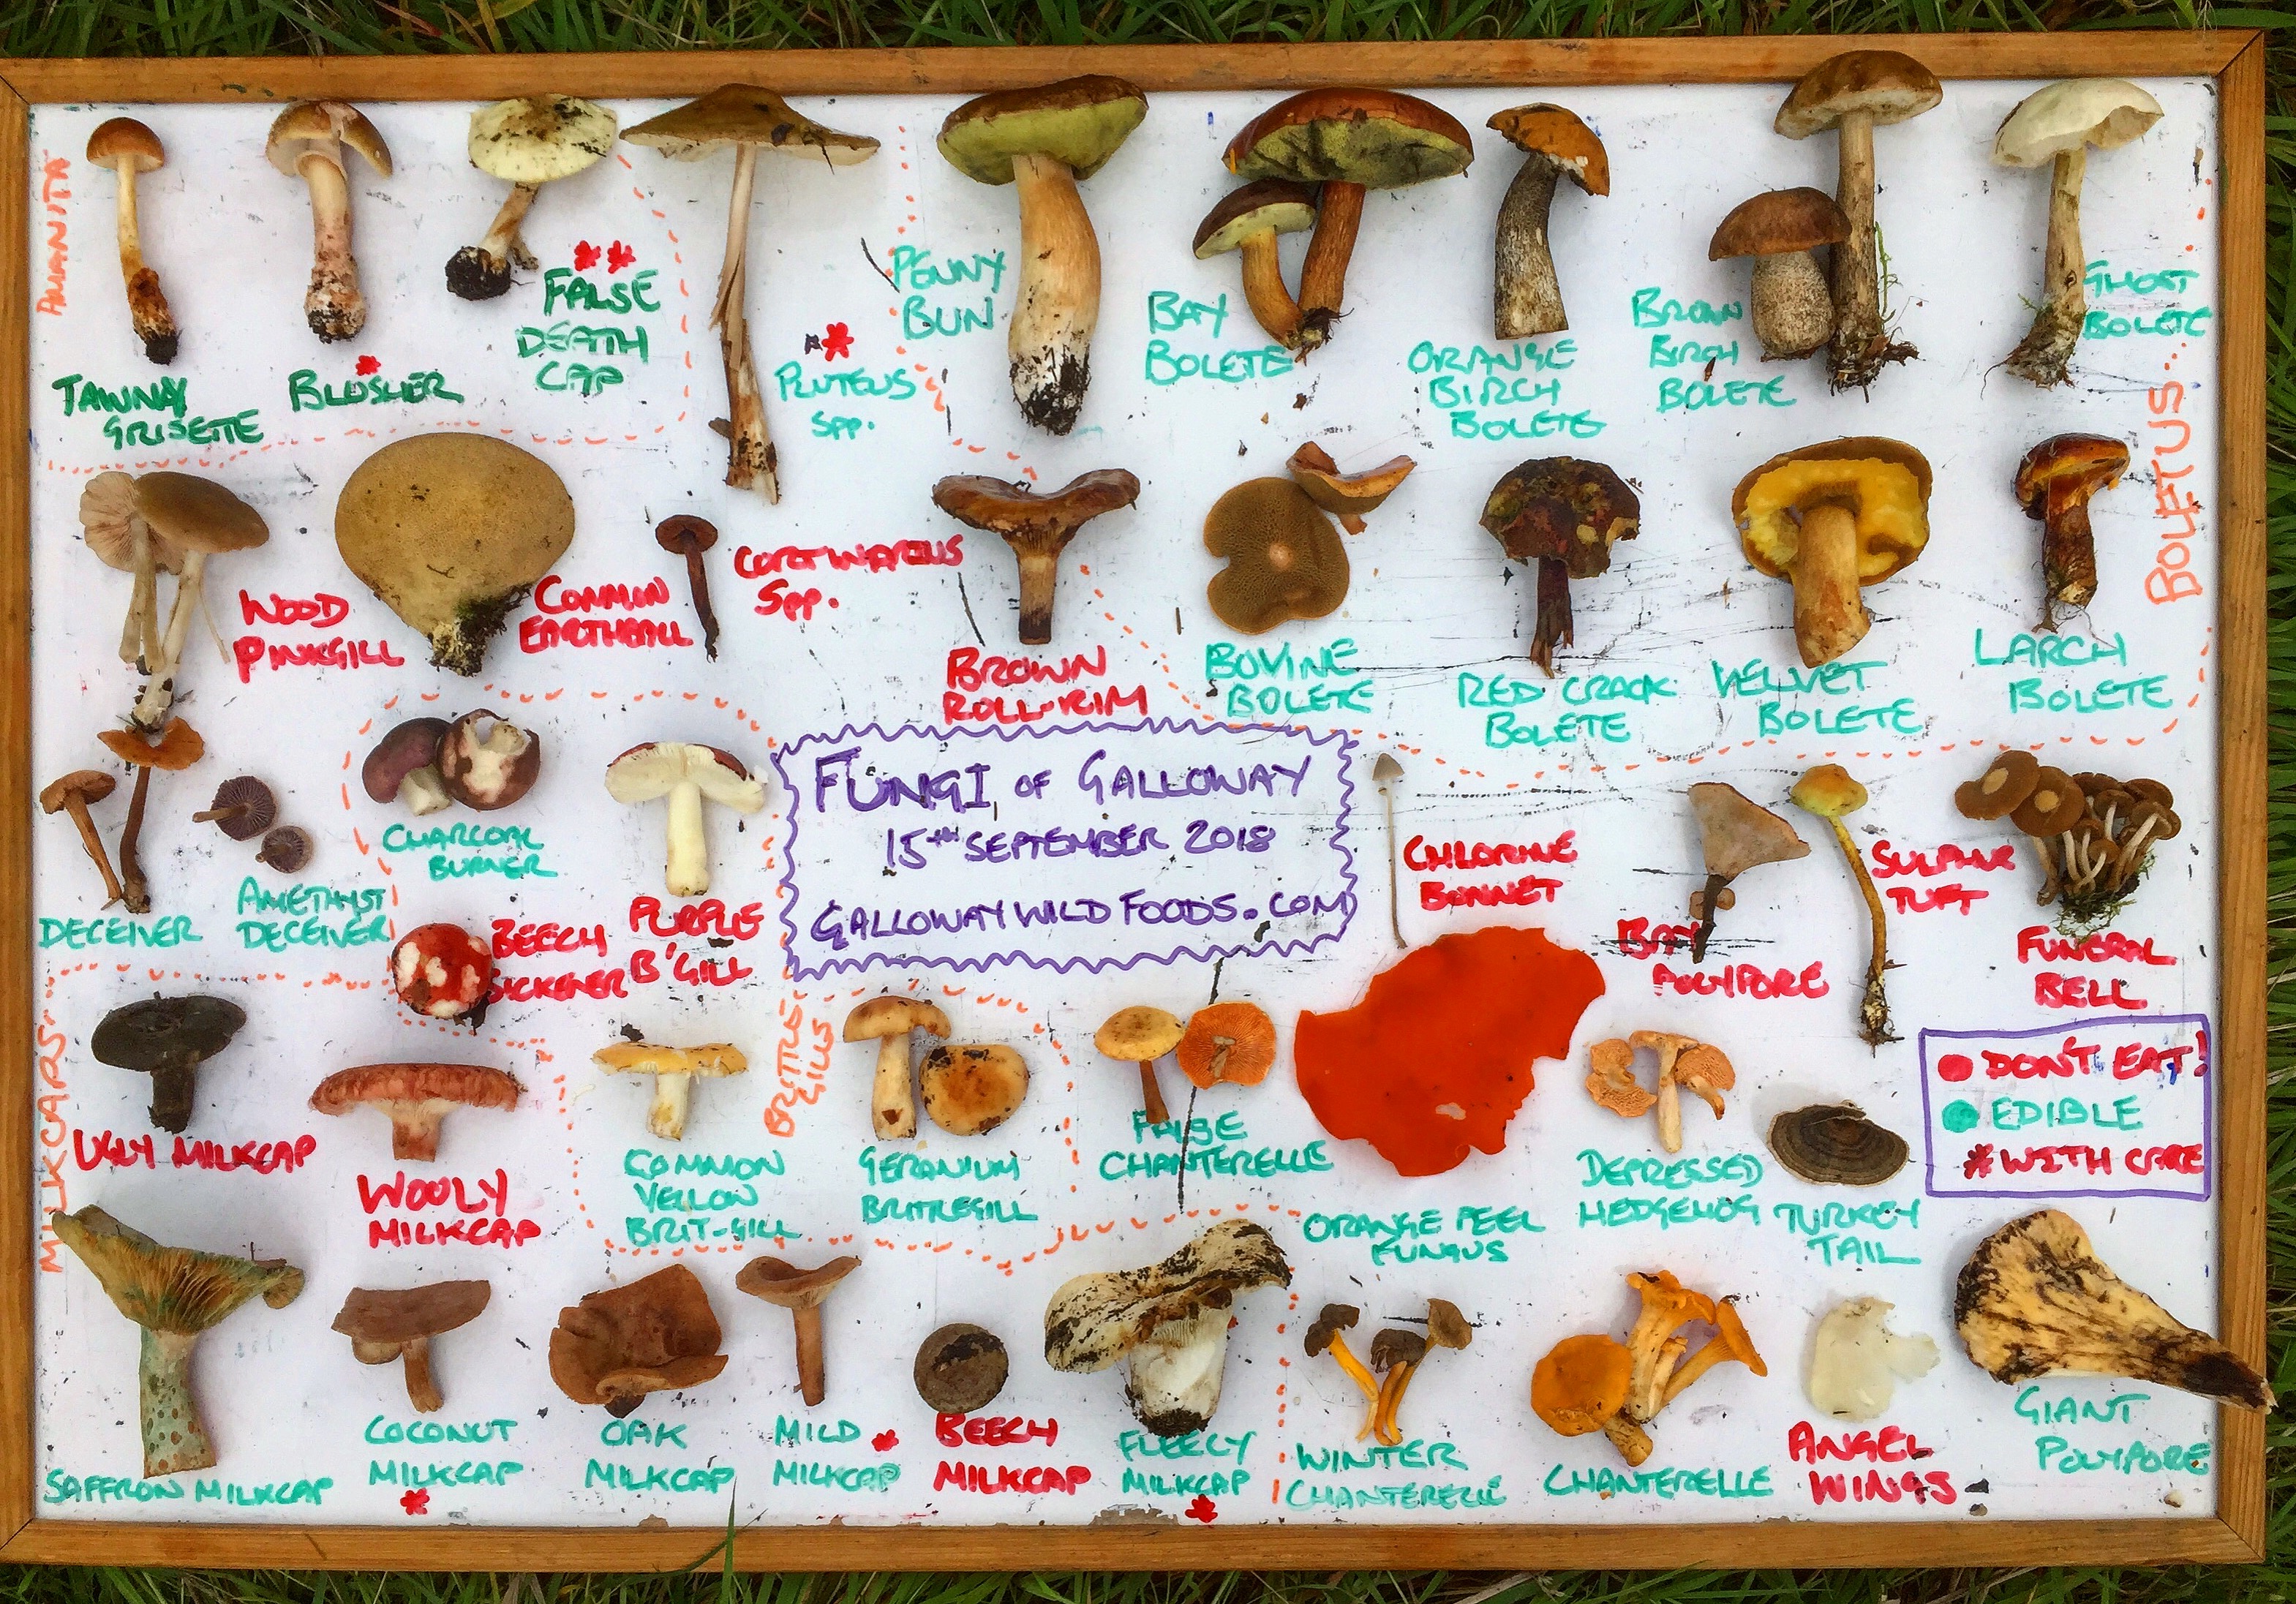 AMANITA
TAWNAY
GRISETTE
BLUSHER
*
**
FALSE
DEATH
CAP
*
PLUTEUS
SPP.
PENNY
BUN
BAY
BOLETE
ORANGE
BIRCH
BOLETE
BROWN
BIRCH
BOLETE
GHOST
BOLETE
BOLETUS
WOOD
PINKGILL
COMMON
EARTHBALL
CORTINARIUS
SPP.
BROWN
ROLL-RIM
BOVINE
BOLETE
RED CRACK
BOLETE
VELVET
BOLETE
LARCH
BOLETE
DECEIVER
AMETHYST
DECEIVER
CHARCOAL
BURNER
BEECH
SICKENER
PURPLE
B'GILL
FUNGI OF GALLOWAY
15TH SEPTEMBER 2018
GALLOWAYWILDFOODS.COM
CHLORINE
BONNET
BAY
POLYPORE
SULPHUR
TUFT
FUNERAL
BELL
DON'T EAT!
EDIBLE
* WITH CARE
MILKCAPS
UGLY MILKCAP
WOOLY
MILKCAP
COMMON
YELLOW
BRIT-GILL
BRITTLE
GILLS
GERANIUM
BRITTLEGILL
FALSE
CHANTERELLE
ORANGE PEEL
FUNGUS
DEPRESSED
HEDGEHOG
TURKEY
TAIL
SAFFRON MILKCAP
COCONUT
MILKCAP
*
OAK
MILKCAP
MILD *
MILKCAP
BEECH
MILKCAP
FLEECY
MILKCAP
*
WINTER
CHANTERELLE
CHANTERELLE
ANGEL
WINGS
GIANT
POLYPORE